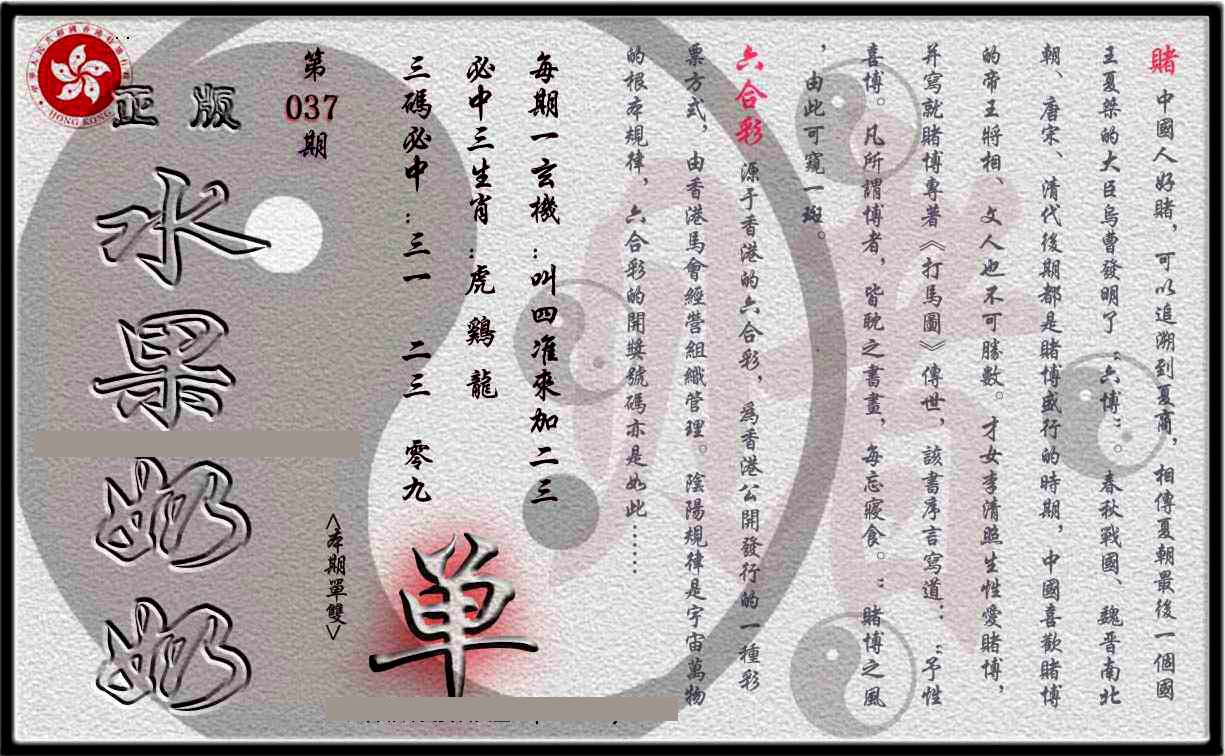 賭 中國人好賭，可以追溯到夏商，相傳夏朝最後一個國
王夏桀的大臣烏曹發明了“六博” 春秋戰國、魏晉南北
朝、唐宋、清代後期都是賭博盛行的時期，中國喜歡賭博
的帝王將相、文人也不可勝數。才女李清照生性愛賭博，
并寫就賭博專著《打馬圖》傳世，該書序言寫道：“予性
喜博。凡所謂博者，皆耽之書畫，每忘寢食。”賭博之風
，由此可窺一斑。
六合彩 源于香港的六合彩，為香港公開發行的一種彩
票方式，由香港馬會經營組織管理。陰陽規律是宇宙萬物
的根本規律，六合彩的開獎號碼亦是如此……
每期一玄機：叫四准來加二三
必中三生肖：虎 鷄 龍
三碼必中：三一 二三 零九
單
<本期單雙>
第
037
期
正版
水果奶奶
HONG KONG